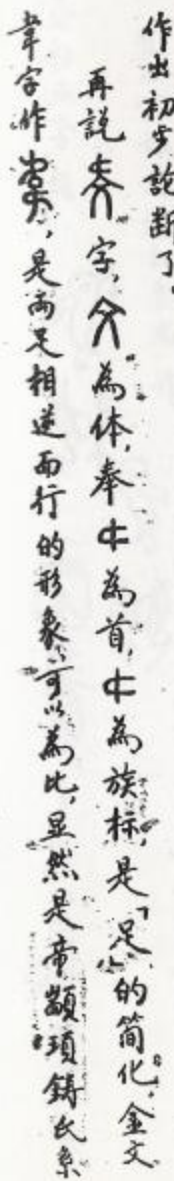 作出初步論斷了。
再説字,為体,奉為首,為族标,是「足」的简化,金文
韋字作,是両足相逆而行的形象,可以為比,显然是帝顓頊鋳氏系